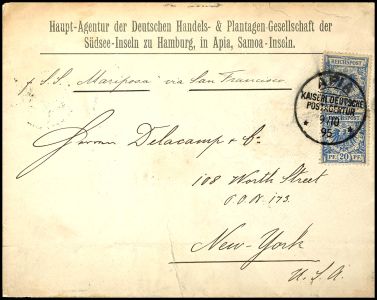 Haupt-Agentur der Deutschen Handels- & Plantagen-Gesellschaft der
Südsee-Inseln zu Hamburg, in Apia, Samoa-Inseln.
p S.S. "Mariposa" via San Francisco
REICHSPOST
APIA
KAISERL. DEUTSCHE
POSTAGENTUR
9/10
95
PF. 20 PF.
Herren Delacamp & Co.
108 Worth Street
P.O.N. 173.
New-York
U.S.A.